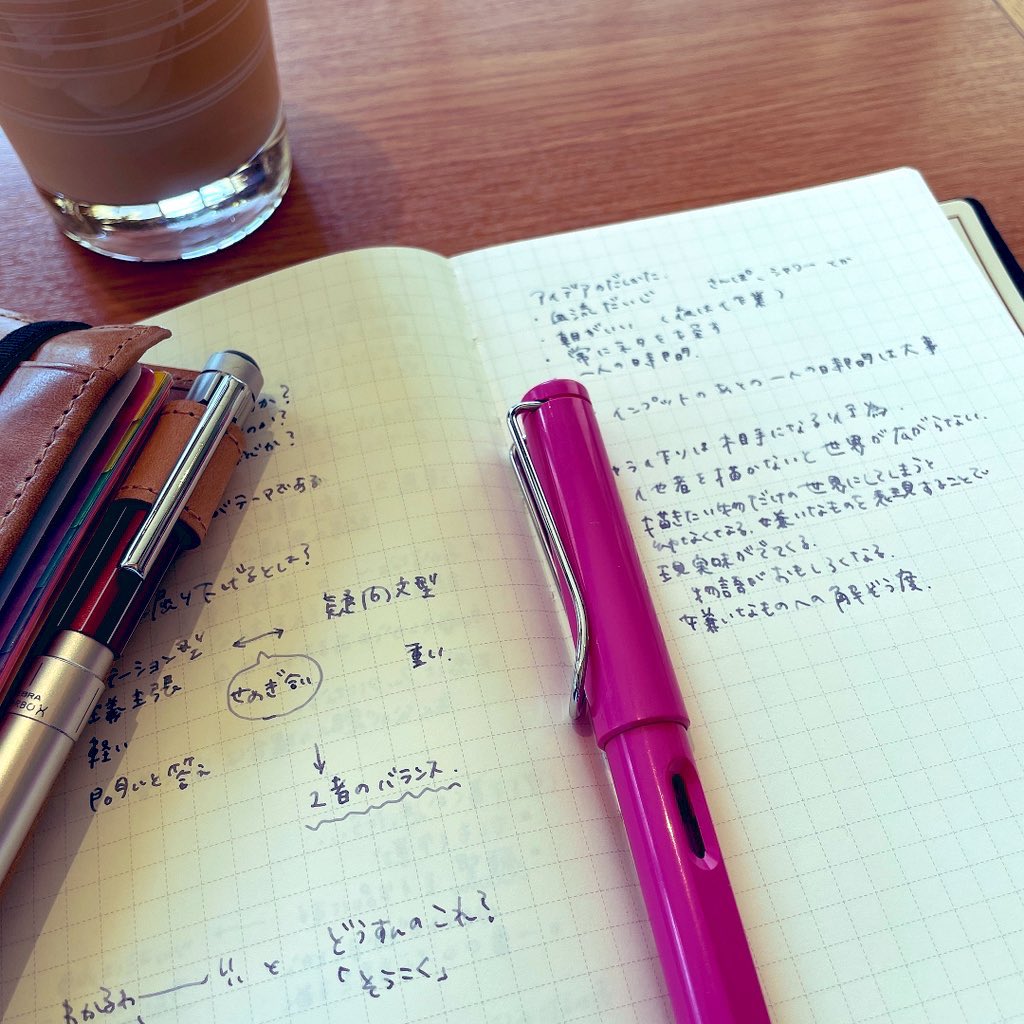 か?
か?
どか?
がテーマである
り下げるとしは?
疑問文型
ーション型
主義主張
せめぎ合い
重い.
軽い
問いと答え
2者のバランス.
どうすんのこれ?
わかるわー
と
「そうこく」
ZEBRA
アイデアのだしかた.
・血流だいじ さんぽ、シャワーとか
・朝がいい (夜は作業)
・常にネタを探す
一人の時間.
インプットのあとの一人の時間は大事
は相手になる行為.
他者を描かないと世界が広がらない.
描きたい物だけの世界にしてしまうと
なる. 嫌いなものを表現することで
現実味がでてくる.
物語がおもしろくなる.
嫌いなものへの解ぞう度.